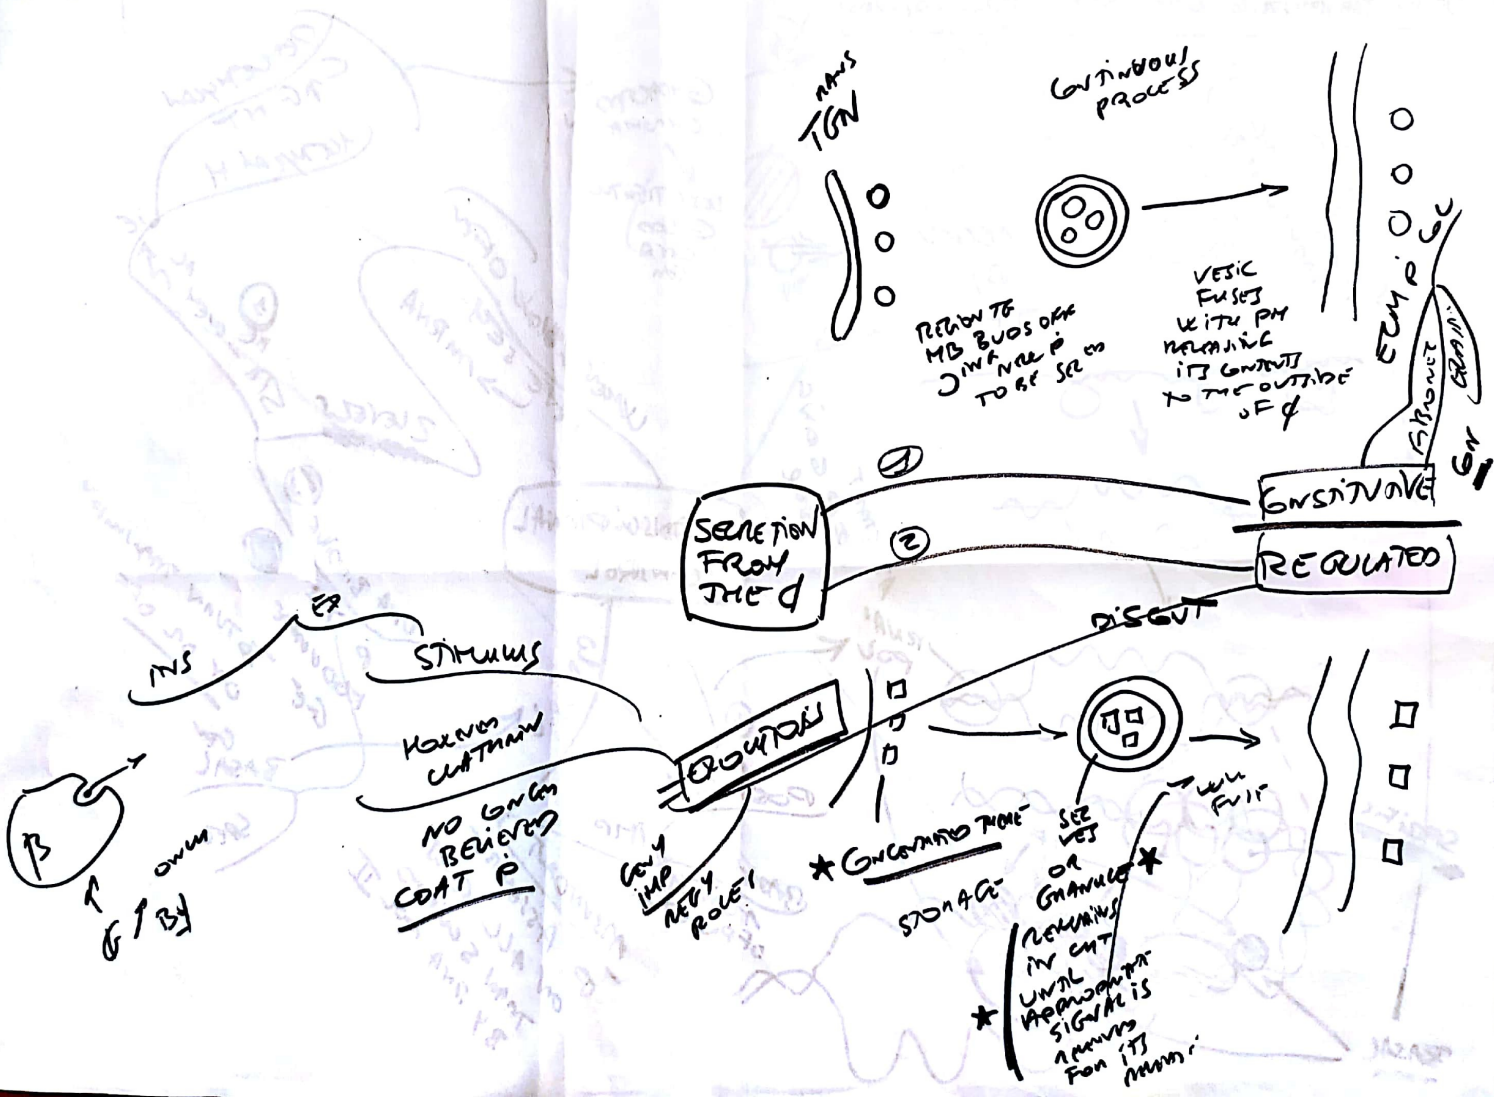 TRANS
TGN
CONTINUOUS
PROCESS
REGION TG
MB BUDS OFF
TO BE SEC ED
VESIC
FUSES
WITH PM
RELEASING
ITS CONTENTS
TO THE OUTSIDE
OF ₵
ECM P GC
FIBRONEC
GN
①
②
SECRETION
FROM
THE ₵
CONSTITUTIVE
REGULATED
DISCONT
EX
INS
STIMULUS
B
G ↑ BY
HOXEVER
CLATHRIN
NO LONGER
BELIEVED
COAT P
GENY
IMP
REGY
ROLE!
★ CONCENTRATED THERE
STORAGE
SEC
VES
OR
GRANULE ★
REMAINS
IN CYT
UNTIL
★ APPROPRIATE
SIGNAL IS
RECEIVED
FOR ITS
WILL
FUSE